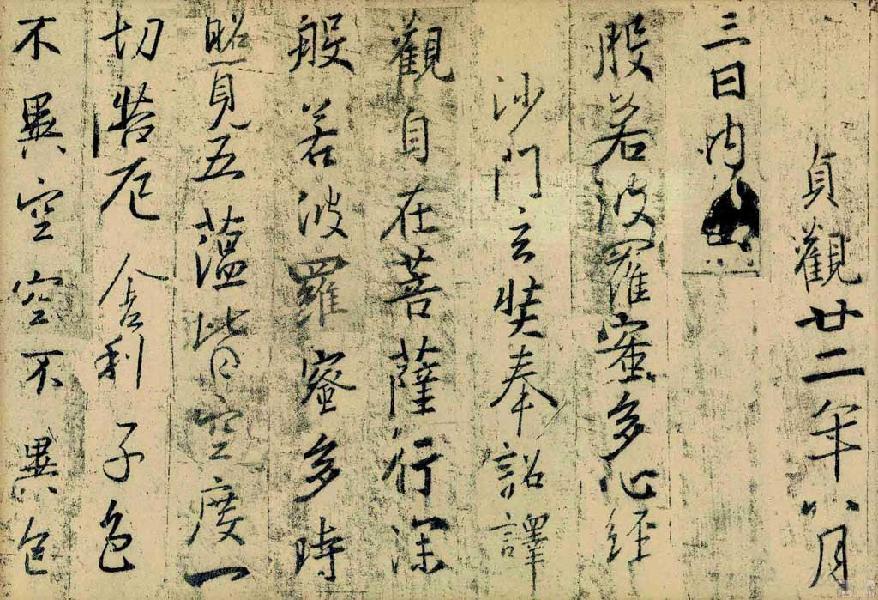 貞觀廿二年八月
三日内出
般若波羅蜜多心经
沙門玄奘奉詔譯
觀自在菩薩行深
般若波羅蜜多時
照見五蘊皆空度一
切苦厄舍利子色
不異空空不異色